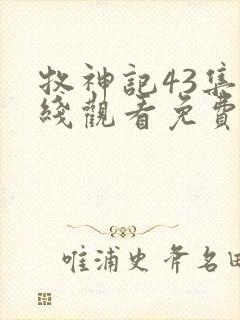 牧神記43集
綫觀看免費
唯浦史斧名